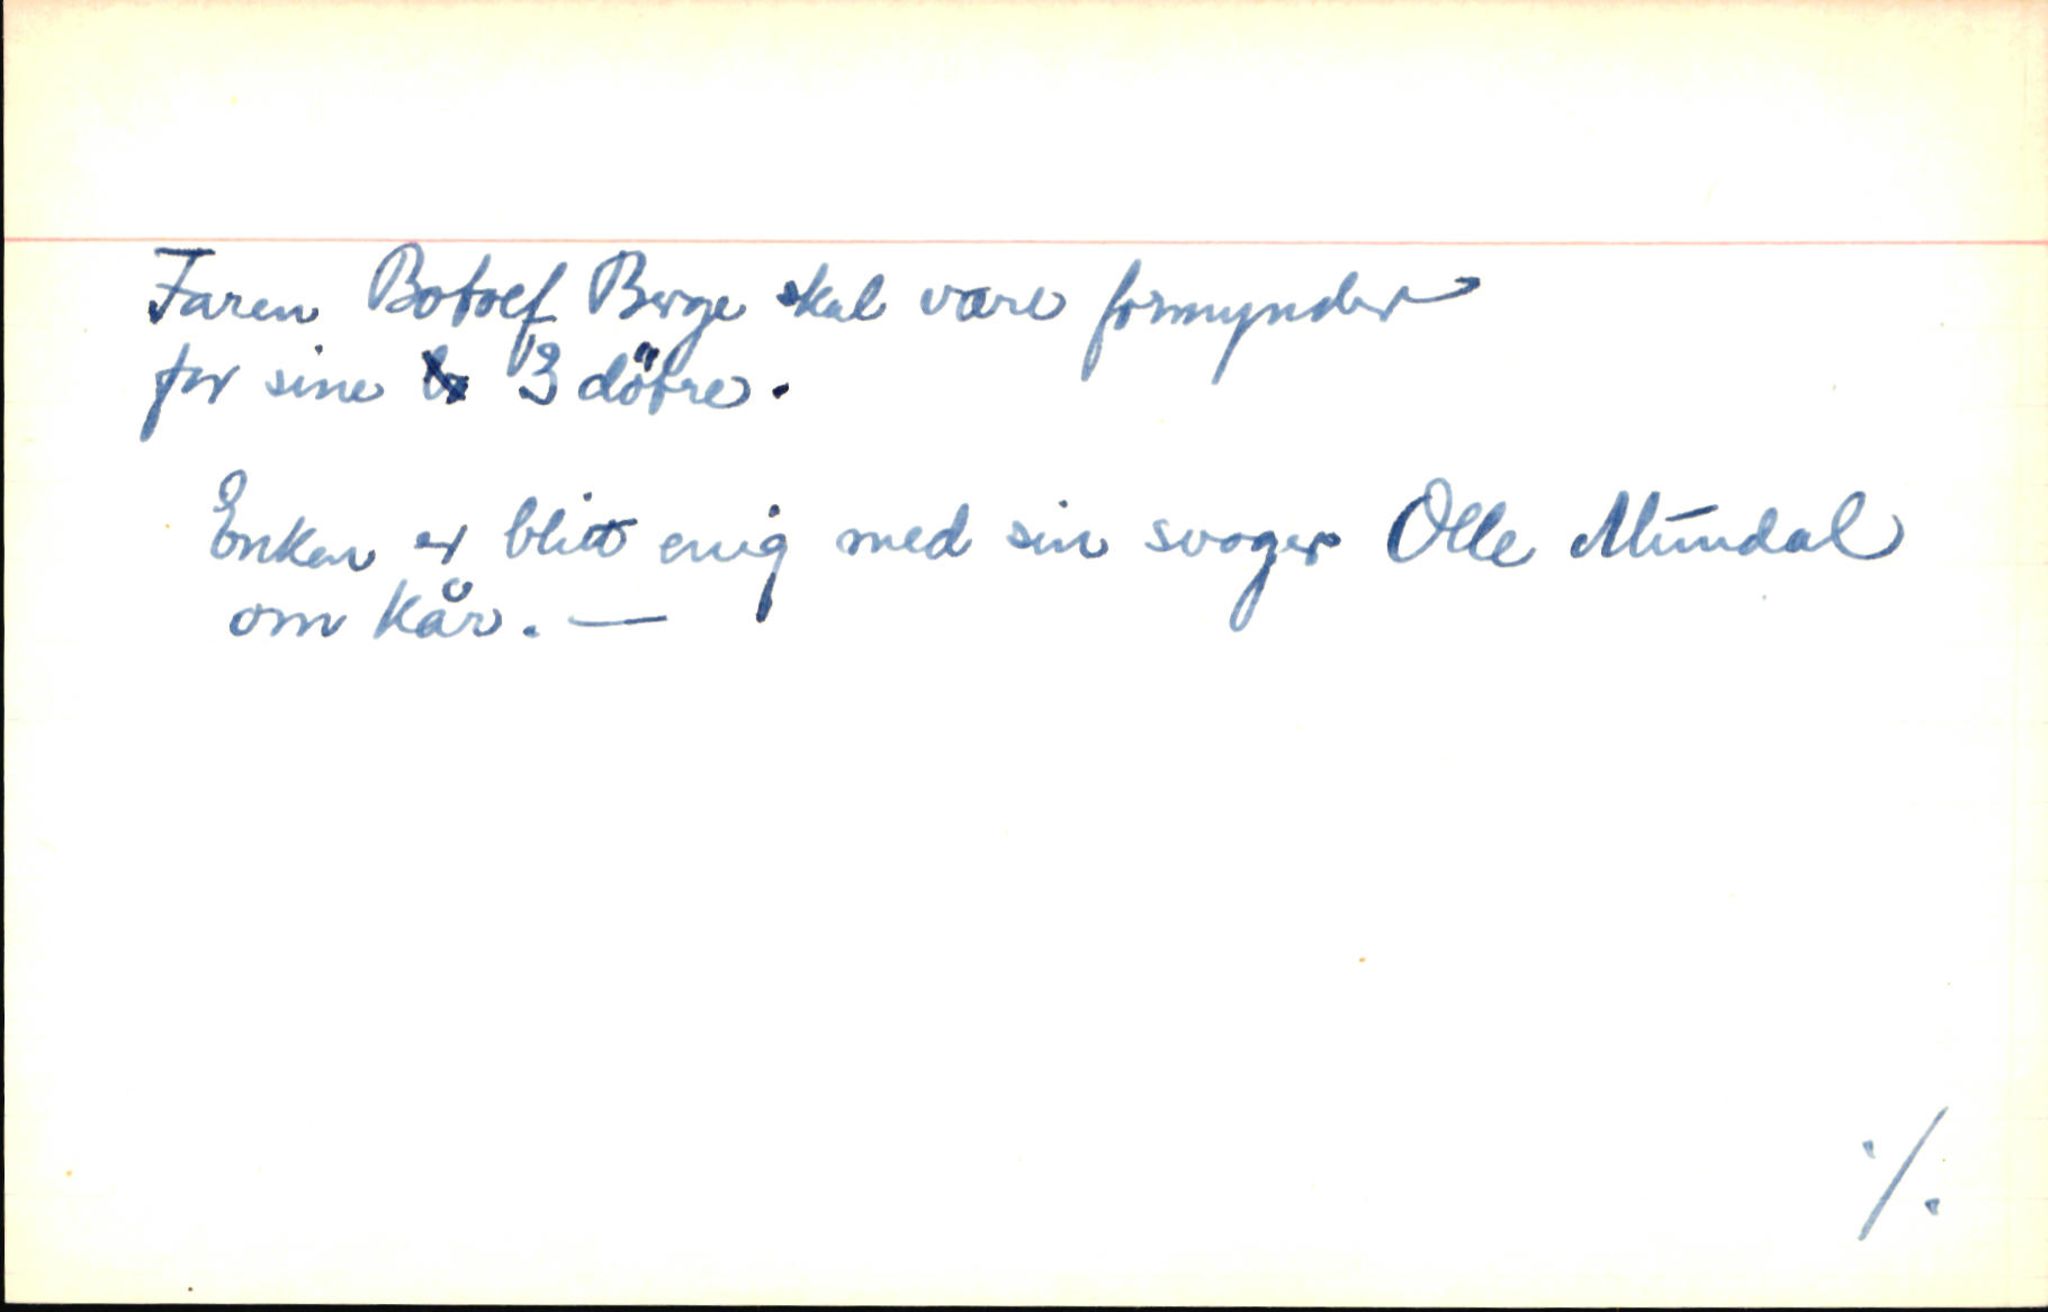 Faren Botolf Berge skal være formynder
for sine 3 dötre.
Enken er blitt enig med sin svoger Olle Mundal
om kår. —
./.